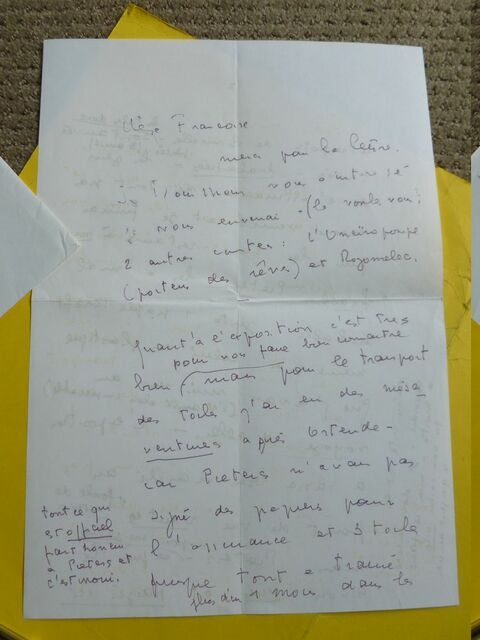 Chère Françoise
merci pour la lettre.
vous a intéressé
je vous enverrai (le voulez vous?
2 autres contes: L'Onéiropompe
(porteur des rêves) et Rogomelec.
Quant à l'exposition, c'est très
pour vous faire bien connaître
bien mais pour le transport
des toiles j'ai eu des mésa
ventures après Ostende-
car Pieters n'avait pas
signé des papiers pour
l'assurance et 3 toiles
presque tout a trainé
plus d'un mois dans les
tout ce qui
est officiel
part
à Pieters et
c'est